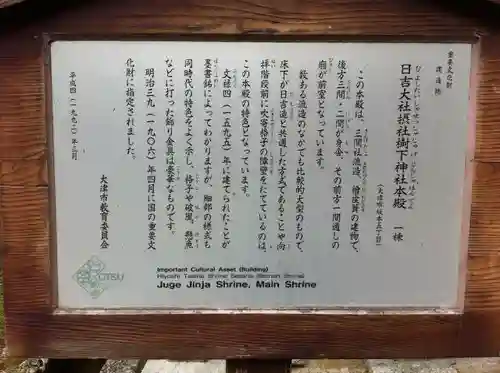 重要文化財
建造物
日吉大社摂社樹下神社本殿　一棟
ひよしたいしゃせっしゃじゅげじんじゃほんでん
（大津市坂本五丁目）
この本殿は、三間社流造、檜皮葺の建物で、
後方三間・二間が身舎、その前方一間通しの
廂が前室となっています。
数ある流造のなかでも比較的大型のもので、
床下が日吉造と共通した方式であることや向
拝階段前に吹寄格子の障壁をたてているのは、
この本殿の特色となっています。
文禄四（一五九五）年に建てられたことが
墨書銘によってわかりますが、細部の様式も
同時代の特色をよく示し、格子や破風、懸魚
などに打った飾り金具は豪華なものです。
明治三九（一九〇六）年四月に国の重要文
化財に指定されました。
大津市教育委員会
平成四（一九九二）年三月
OTSU
Important Cultural Asset (Building)
Hiyoshi Taisha Shrine Sessha (Branch Shrine)
Juge Jinja Shrine, Main Shrine